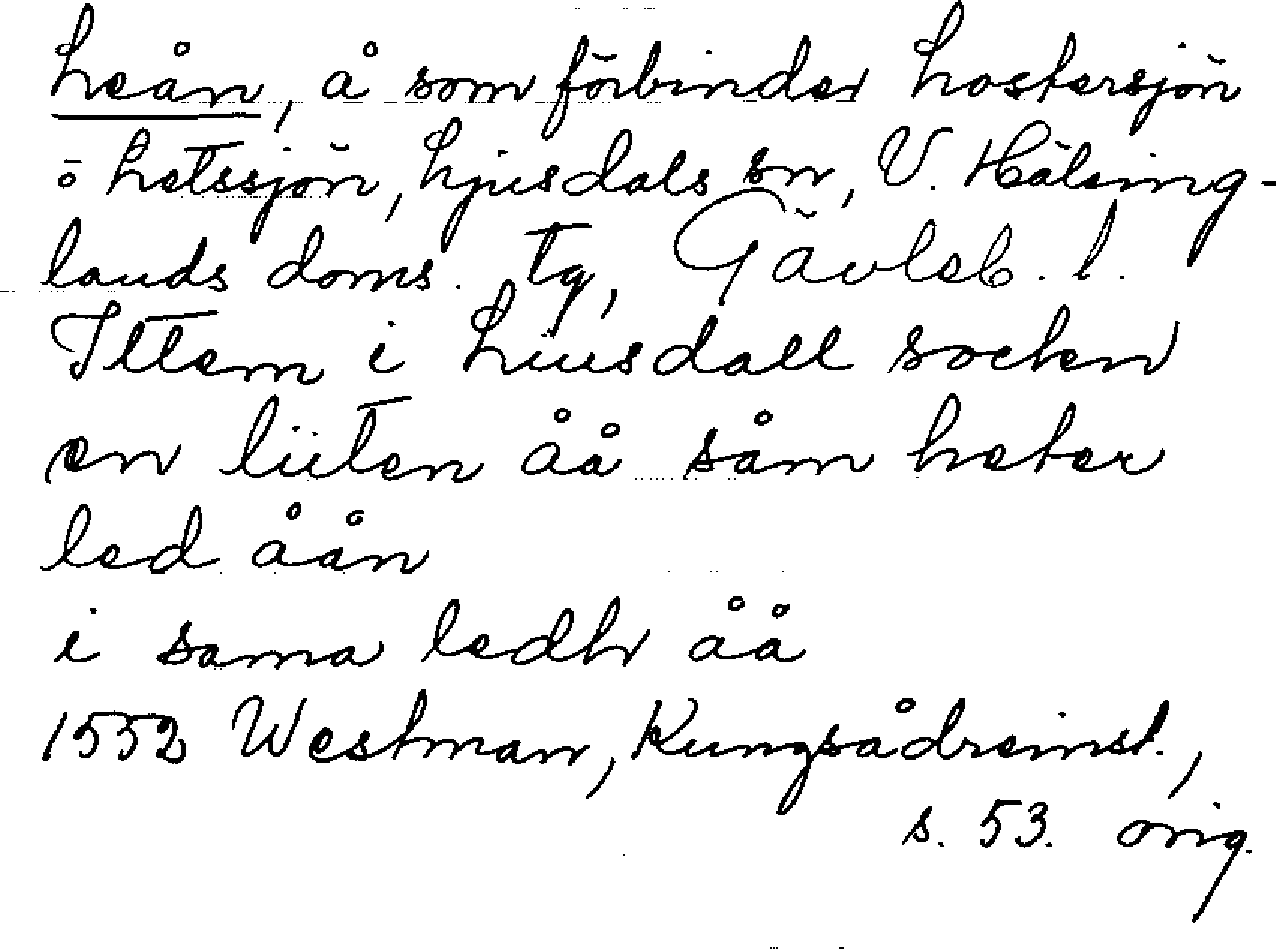 Leån, å som förbinder Lostersjön
o Letssjön, Ljusdals sn, V. Hälsing-
lands doms. tg, Gävleb. l.
Ittem i Liusdall socken
en liiten åå såm heter
led åån
i sama ledh åå
1552 Westman, Kungsådreinst.,
s. 53. orig.